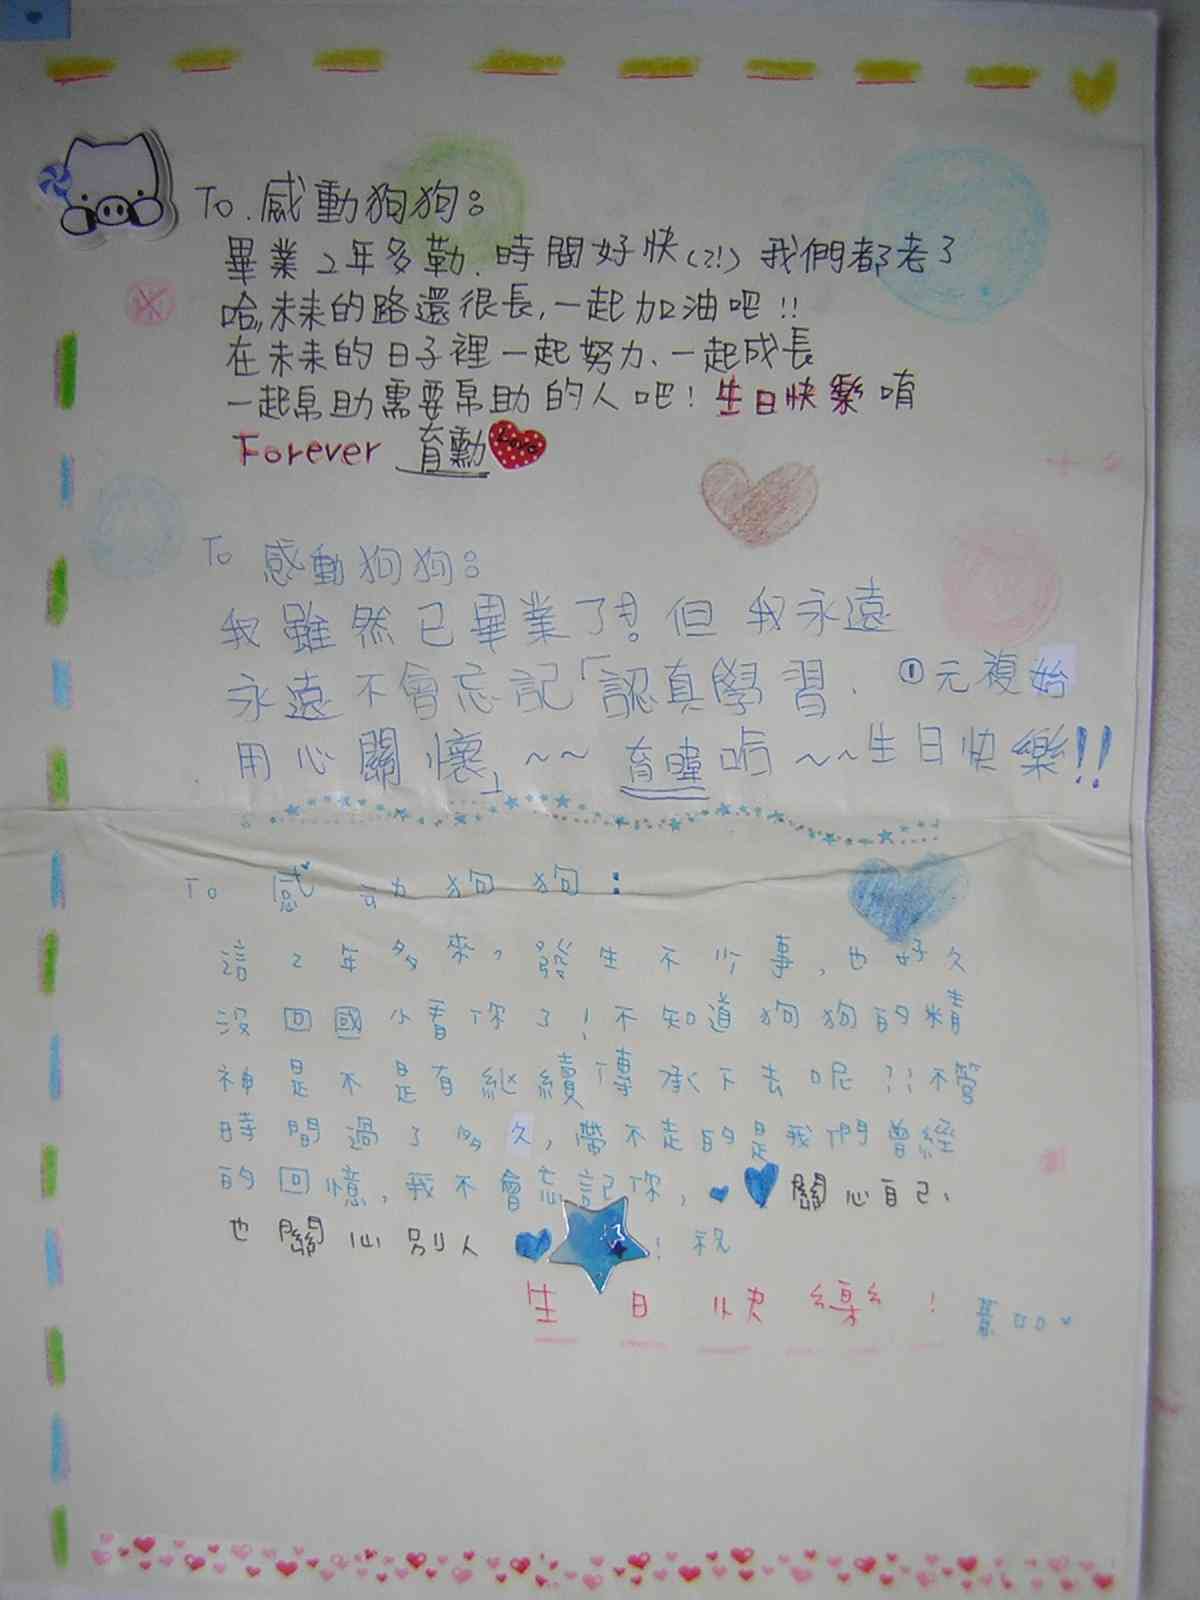 To. 感動狗狗：
畢業2年多勒.時間好快(?!)我們都老了
哈,,未來的路還很長,一起加油吧!!
在未來的日子裡一起努力、一起成長
一起幫助需要幫助的人吧!生日快樂唷
Forever 育勳 Love
To 感動狗狗：
我雖然已畢業了!但我永遠
永遠不會忘記「認真學習. ①元複始
用心關懷」~~育暐唷~~生日快樂!!
To 感動狗狗:
這2年多來,發生不少事,也好久
沒回國小看你了!不知道狗狗的精
神是不是有繼續傳承下去呢??不管
時間過了多久,帶不走的是我們曾經
的回憶,我不會忘記你,關心自己、
也關心別人!祝
生日快樂!